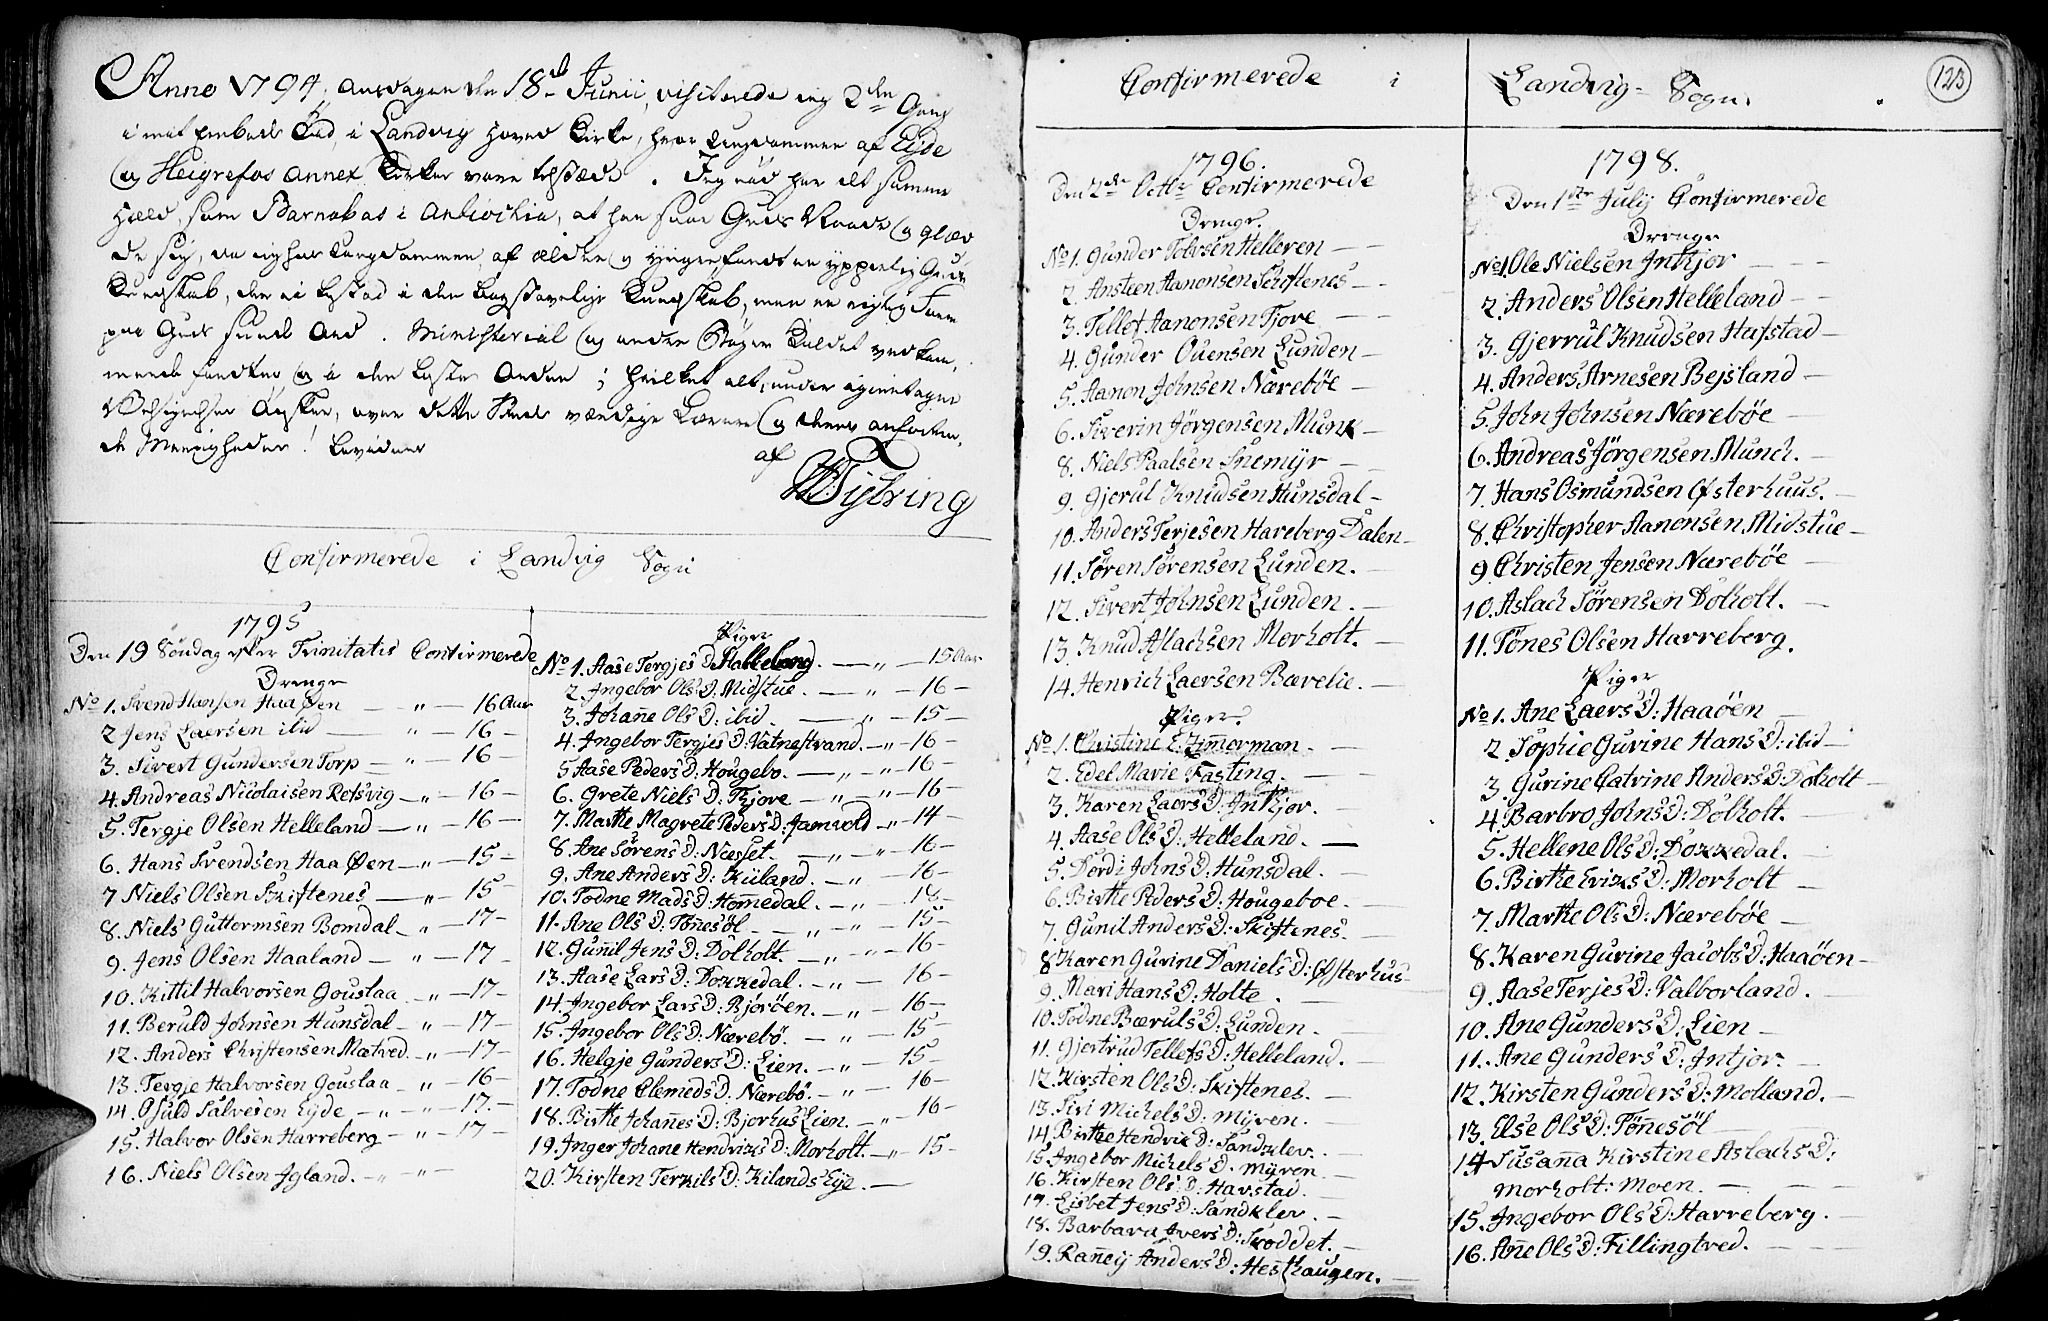 Anno 1794, Onsdagen den 18de Junii, visiterede jeg 2den Gang
i mit Embeds Tid, i Landvig Hoved Kirke, hvor Ungdommen af Eide
og Heigrefos Annex Kirker vare tilstæde. Jeg nød her det samme
Held, som Barnabas i Antiochia, at han saae Guds Naade og glæd
de sig, da jeg hos Ungdommen, af ældre og yngre fandt en ypperlig Guds
Kundskab, der ei bestod i den bogstavelige Kundskab, men en rigtig
paa Guds sande Ord. Ministerial og andre Bøger Kaldet vedkom,
mende fandtes og i den beste Orden; hvilket alt, under igientagne
Velsignelses Ønsker, over dette Steds værdige Lærere og deres anfortroe,
de Menigheder! bevidner
af
Confirmerede i Landvig Sogn
1795
Den 19 Søndag efter Trinitatis Confirmerede
Drenge
No 1. Svend Hansen Haaøen — " — 16 Aar
2 Jens Laersen ibid — " — 16 —
3. Sivert Gundersen Torp — " — 16
4. Andreas Nicolaisen Refsvig — " — 16 —
5. Tergje Olsen Helleland — " — 16 —
6. Hans Svendsen Haa Øen — " — 15 —
7 Niels Olsen Skiftenes — " — 15 —
8. Niels Guttormsen Bomdal — " — 17 —
9. Jens Olsen Haaland — " — 17 —
10. Kittil Halvorsen Gouslaa — " — 17 —
11. Beruld Johnsen Hunsdal — " — 17 —
12. Anders Christensen Mætved — " — 17 —
13. Tergje Halvorsen Gouslaa — " — 16 —
14. Osuld Salvesen Eyde — " — " — 17. —
15. Halvor Olsen Harreberg — " — 17 —
16. Niels Olsen Igland. — " — " —
Piger
No 1. Aase Tergjes D. — " — 15 Aar
2. Ingebor Ols D: Midstue. — " — 16 —
3. Johane Ols D: ibid. — " — 15 —
4. Ingebor Tergjes D: Vatnestrand. — " — 16 —
5 Aase Peders D: Hougebo. — " — " — 16 —
6. Grete Niels D: Kjore — " — " — 16
7. Marthe Magrete Peders D: Jamvold " — 14 —
8. Ane Sørens D: Næsset. — " — " — 16 —
9. Ane Anders D: Kiland. — " — 16 —
10. Todne Mads D: Homedal. — " —
11. Ane Ols D: Tønesøl — " — " — 15 —
12. Gunil Jens D: Dolholt. — " — " — 16 —
13. Aase Lars D: Dokkedal. — " — 16 —
14. Ingebor Lars D: Bjorøen. — " — 16 —
15. Ingebor Ols D: Nærebø. — " — 15 —
16. Helgje Gunders D: Lien. — " — 15 —
17. Todne Clemeds D: Nærebø. — " — 16 —
18. Birthe Johanes D: Bjorhus Lien. — " — 16 —
19. Inger Johane Hendriks D: Morholt. — " — 15 —
20. Kirsten Terkils D: Kilands Eje. —
Confirmerede i Landvig Sogn.
123
1796.
Den 2den Octbr Confirmerede
Drenge.
No 1. Gunder Tolvsen Helleren — —
2. Ansteen Aanonsen Schiftenes — —
3. Tellef Aanonsen Fjove — —
4. Gunder Ouensen Lunden —
5. Aanon Johnsen Nærebøe —
6. Siverin Jörgensen Munk —
8. Niels Paalsen Snemyr — —
9. Gjerul Knudsen Hunsdal —
10. Anders Terjesen Hareberg Dalen —
11. Søren Sørensen Lunden. —
12. Sivert Johnsen Lunden. —
13. Knud Aslachsen Morholt. —
14. Henrich Laersen Bærelie. —
Piger.
No 1. Christine E. Zimerman. —
2. Edel Marie Fasting. — —
3. Karen Laers D: Inkjor. —
4. Aase Ols D: Helleland. —
5. Dordi Johns D: Hunsdal.
6. Birthe Peders D: Hougeboe. —
7. Gunil Anders D: Skiftenes. —
8 Karen Gurine Daniels D: Østerhus —
9. Mari Hans D: Holte.
10. Todne Bæruls D: Lunden. —
11. Gjertrud Tellefs D: Helleland.
12. Kirsten Ols D: Skiftenes. —
13. Siri Michels D: Myren. —
14. Birthe Hendrik D: Sandklev. —
15. Ingebor Michels D: Myren. —
16. Kirsten Ols D: Havstad. —
17. Lisbet Jens D: Sandklev. —
18. Barbara Ivers D: Skoddet. —
19. Raney Anders D: Hesthaugen. —
1798.
Den 1ste July Confirmerede
Drenge
No 1 Ole Nielsen Inkjor — —
2. Anders Olsen Helleland —
3. Gjerrul Knudsen Hafstad —
4. Anders Arnesen Bejsland —
5. John Johnsen Nærebøe —
6. Andreas Jörgensen Munch. —
7. Hans Osmundsen Østerhuus. —
8. Christopher Aanonsen Midstue —
9 Christen Jensen Nærebøe —
10. Aslach Sörensen Dolholt. —
11. Tønes Olsen Harreberg.
Piger
No 1. Ane Laers D: Haaöen —
2. Sophie Gurine Hans D: ibid —
3 Gurine Catrine Anders D: Dolholt —
4. Barbro Johns D: Dolholt. —
5. Hellene Ols D: Dokkedal. —
6. Birthe Eriks D: Morholt —
7. Marthe Ols D: Nærebøe —
8. Karen Gurine Jacobs D: Haaöen —
9. Aase Terjes D: Valborland. —
10. Ane Gunders D: Lien —
11. Ane Gunders D: Intjor. —
12. Kirsten Gunders D: Molland. —
13. Else Ols D: Tönesöl —
14 Susana Kirstine Aslachs D:
Morholt: Moen. — —
15. Ingebor Ols D: Harreberg. —
16. Ane Ols D: Fillingtved. —